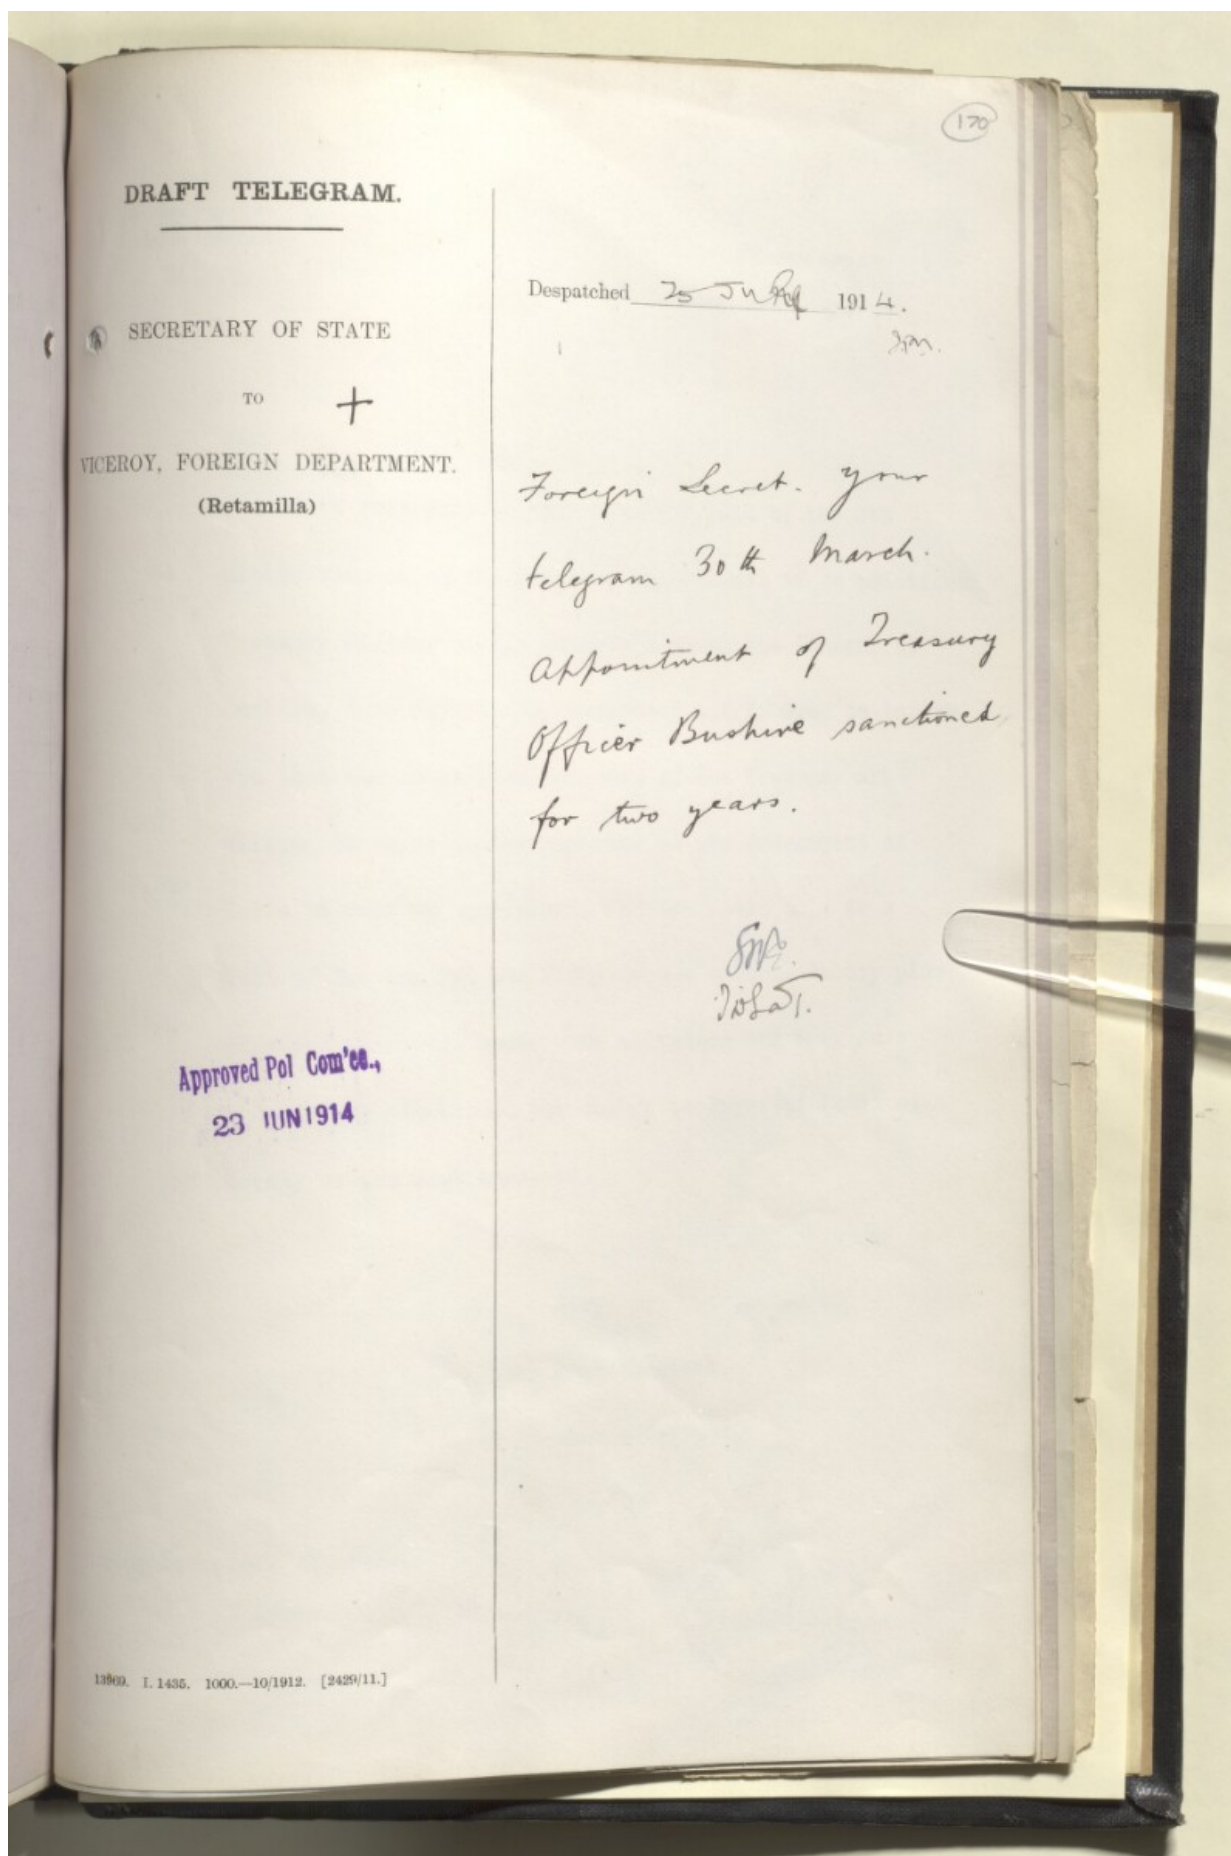 170
DRAFT TELEGRAM.
SECRETARY OF STATE
TO
VICEROY, FOREIGN DEPARTMENT.
(Retamilla)
Approved Pol Com'ee.,
23 JUN 1914
13969. I. 1435. 1000.—10/1912. [2429/11.]
Despatched 25 June 1914.
Foreign Secret. Your
telegram 30th March.
Appointment of Treasury
Officer Bushire sanctioned
for two years.